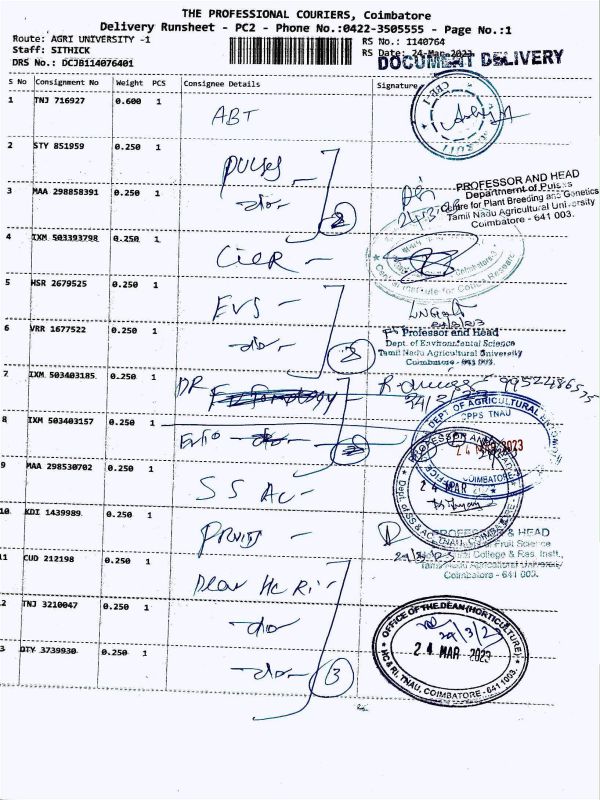 THE PROFESSIONAL COURIERS, Coimbatore
Delivery Runsheet - PC2 - Phone No.:0422-3505555 - Page No.:1
Route: AGRI UNIVERSITY -1
Staff: SITHICK
DRS No.: DCJB114076401
RS No.: 1140764
RS Date: 24-Mar-2023
DOCUMENT DELIVERY
S No Consignment No Weight PCS Consignee Details Signature
1 TNJ 716927 0.600 1 ABT
2 STY 851959 0.250 1 pulses
3 MAA 298858391 0.250 1 -do- 2
PROFESSOR AND HEAD
Department of Pulses
Centre for Plant Breeding and Genetics
Tamil Nadu Agricultural University
Coimbatore - 641 003.
24-3-23
4 IXM 503393798 0.250 1 CICR -
Central Institute for Cotton Research
5 HSR 2679525 0.250 1 EVS -
6 VRR 1677522 0.250 1 -do- 2
Professor and Head
Dept. of Environmental Science
Tamil Nadu Agricultural University
Coimbatore - 641 003.
7 IXM 503403185 0.250 1 DR
8 IXM 503403157 0.250 1 Ento -do-
DEPT OF AGRICULTURAL
CPPS TNAU
COIMBATORE-
24 MAR 2023
9 MAA 298530702 0.250 1 SS AC -
24 MAR
Dept. of SS & AC, TNAU, COIMBATORE
10 KDI 1439989 0.250 1 Fruits -
PROFESSOR & HEAD
Fruit Science
College & Res. Instt.,
Tamil Nadu Agricultural University
Coimbatore - 641 003.
11 CUD 212198 0.250 1 Dean HC RI -
12 TNJ 3210047 0.250 1 -do-
13 OTY 3739930 0.250 1 -do- 3
OFFICE OF THE DEAN (HORTICULTURE)
24/3/23
24 MAR 2023
HC & RI, TNAU, COIMBATORE - 641 003.